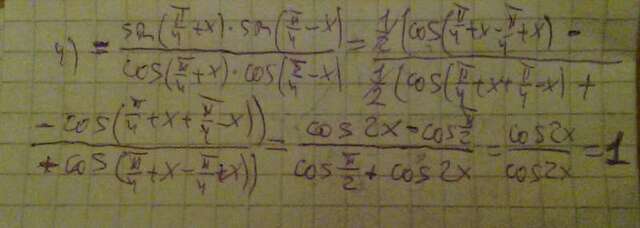 4) = sin(π/4 + x) · sin(π/4 − x) / cos(π/4 + x) · cos(π/4 − x) = 1/2 (cos(π/4 + x − π/4 + x) − / 1/2 (cos(π/4 + x + π/4 − x) +
− cos(π/4 + x + π/4 − x)) / + cos(π/4 + x − π/4 + x)) = cos 2x − cos π/2 / cos π/2 + cos 2x = cos 2x / cos 2x = 1